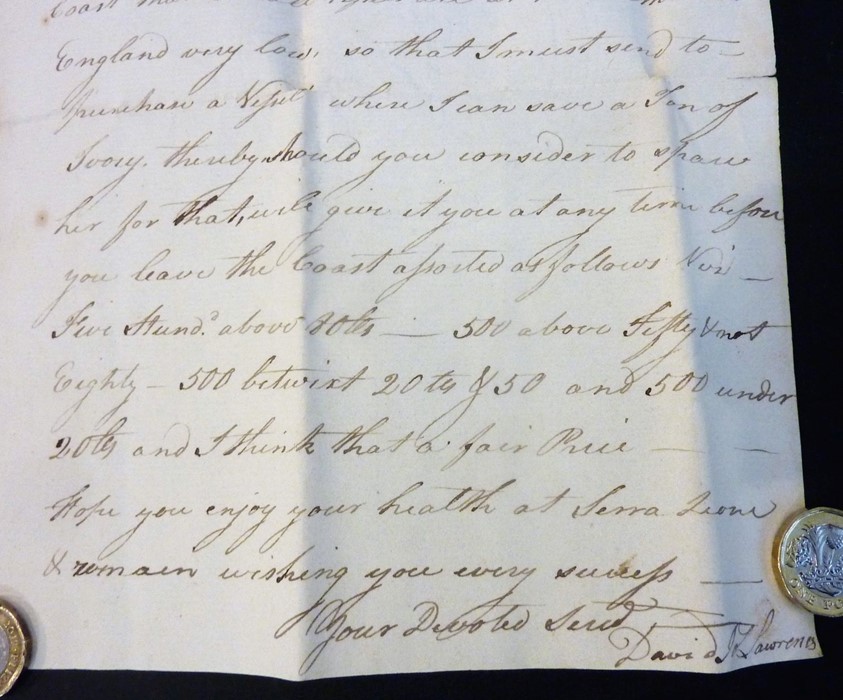 Coast
England very low, so that I must send to
purchase a Vessel where I can save a Ton of
Ivory. thereby should you consider to spare
her for that, will give it you at any time before
you leave the Coast assorted as follows Viz
Five Hund.d above 80lbs — 500 above Fifty & not
Eighty — 500 betwixt 20 lbs & 50 and 500 under
20lbs and I think that a fair Price — —
Hope you enjoy your health at Serra Leone
& remain wishing you every success —
Your Devoted Servt
David Lawrence
ONE PO